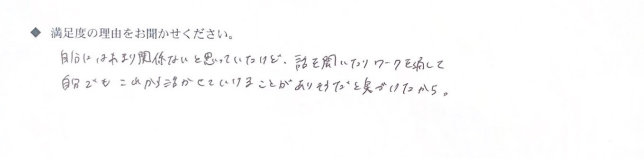 ◆ 満足度の理由をお聞かせください。
自分にはあまり関係ないと思っていたけど、話を聞いたりワークを通して
自分でもこれから活かせていけることがありそうだと気づけたから。